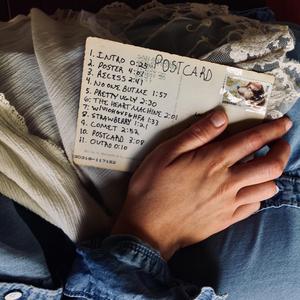 POSTCARD
1. INTRO 0:25
2. POSTER
3. RECESS 2:41
4. NO ONE BUT ME 1:57
5. PRETTY UGLY 2:30
6. THE HEART MACHINE 2:01
7. 1:33
8. STRAWBERRY 1:21
9. COMET 2:52
10. POSTCARD 3:08
11. OUTRO 0:10